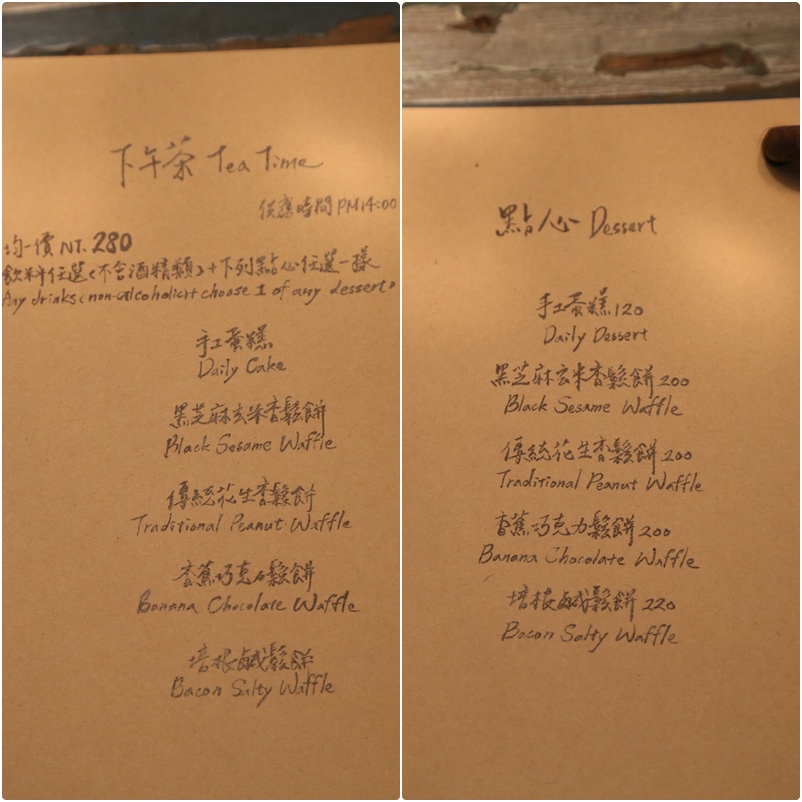 下午茶 Tea Time
供應時間 PM14:00
均一價 NT. 280
飲料任選(不含酒精類)+下列點心任選一樣
Any drinks (non-alcoholic) + choose 1 of any dessert
手工蛋糕
Daily Cake
黑芝麻玄米香鬆餅
Black Sesame Waffle
傳統花生香鬆餅
Traditional Peanut Waffle
香蕉巧克力鬆餅
Banana Chocolate Waffle
培根鹹鬆餅
Bacon Salty Waffle
點心 Dessert
手工蛋糕 120
Daily Dessert
黑芝麻玄米香鬆餅 200
Black Sesame Waffle
傳統花生香鬆餅 200
Traditional Peanut Waffle
香蕉巧克力鬆餅 200
Banana Chocolate Waffle
培根鹹鬆餅 220
Bacon Salty Waffle